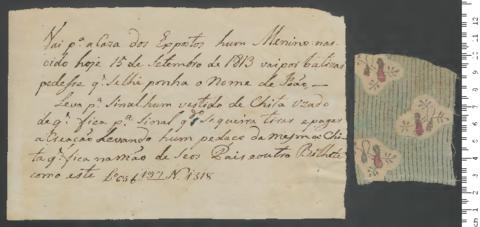 Vai pª a Caza dos Expostos hum Menino nas-
cido hoje 15 de Setembro de 1813 vai por batizar
pedesse qͤ se lhe ponha o Nome de João
Leva pʳ Sinal hum vestido de Chita uzado
de qͤ fica pª Sinal qᵈᵒ se queira tirar e pagar
a Creação levando hum pedaço da mesma Chi-
ta qͤ fica na mão de Seos Pais e outro Bilhete
como este Lº 63 f 197 N 1318